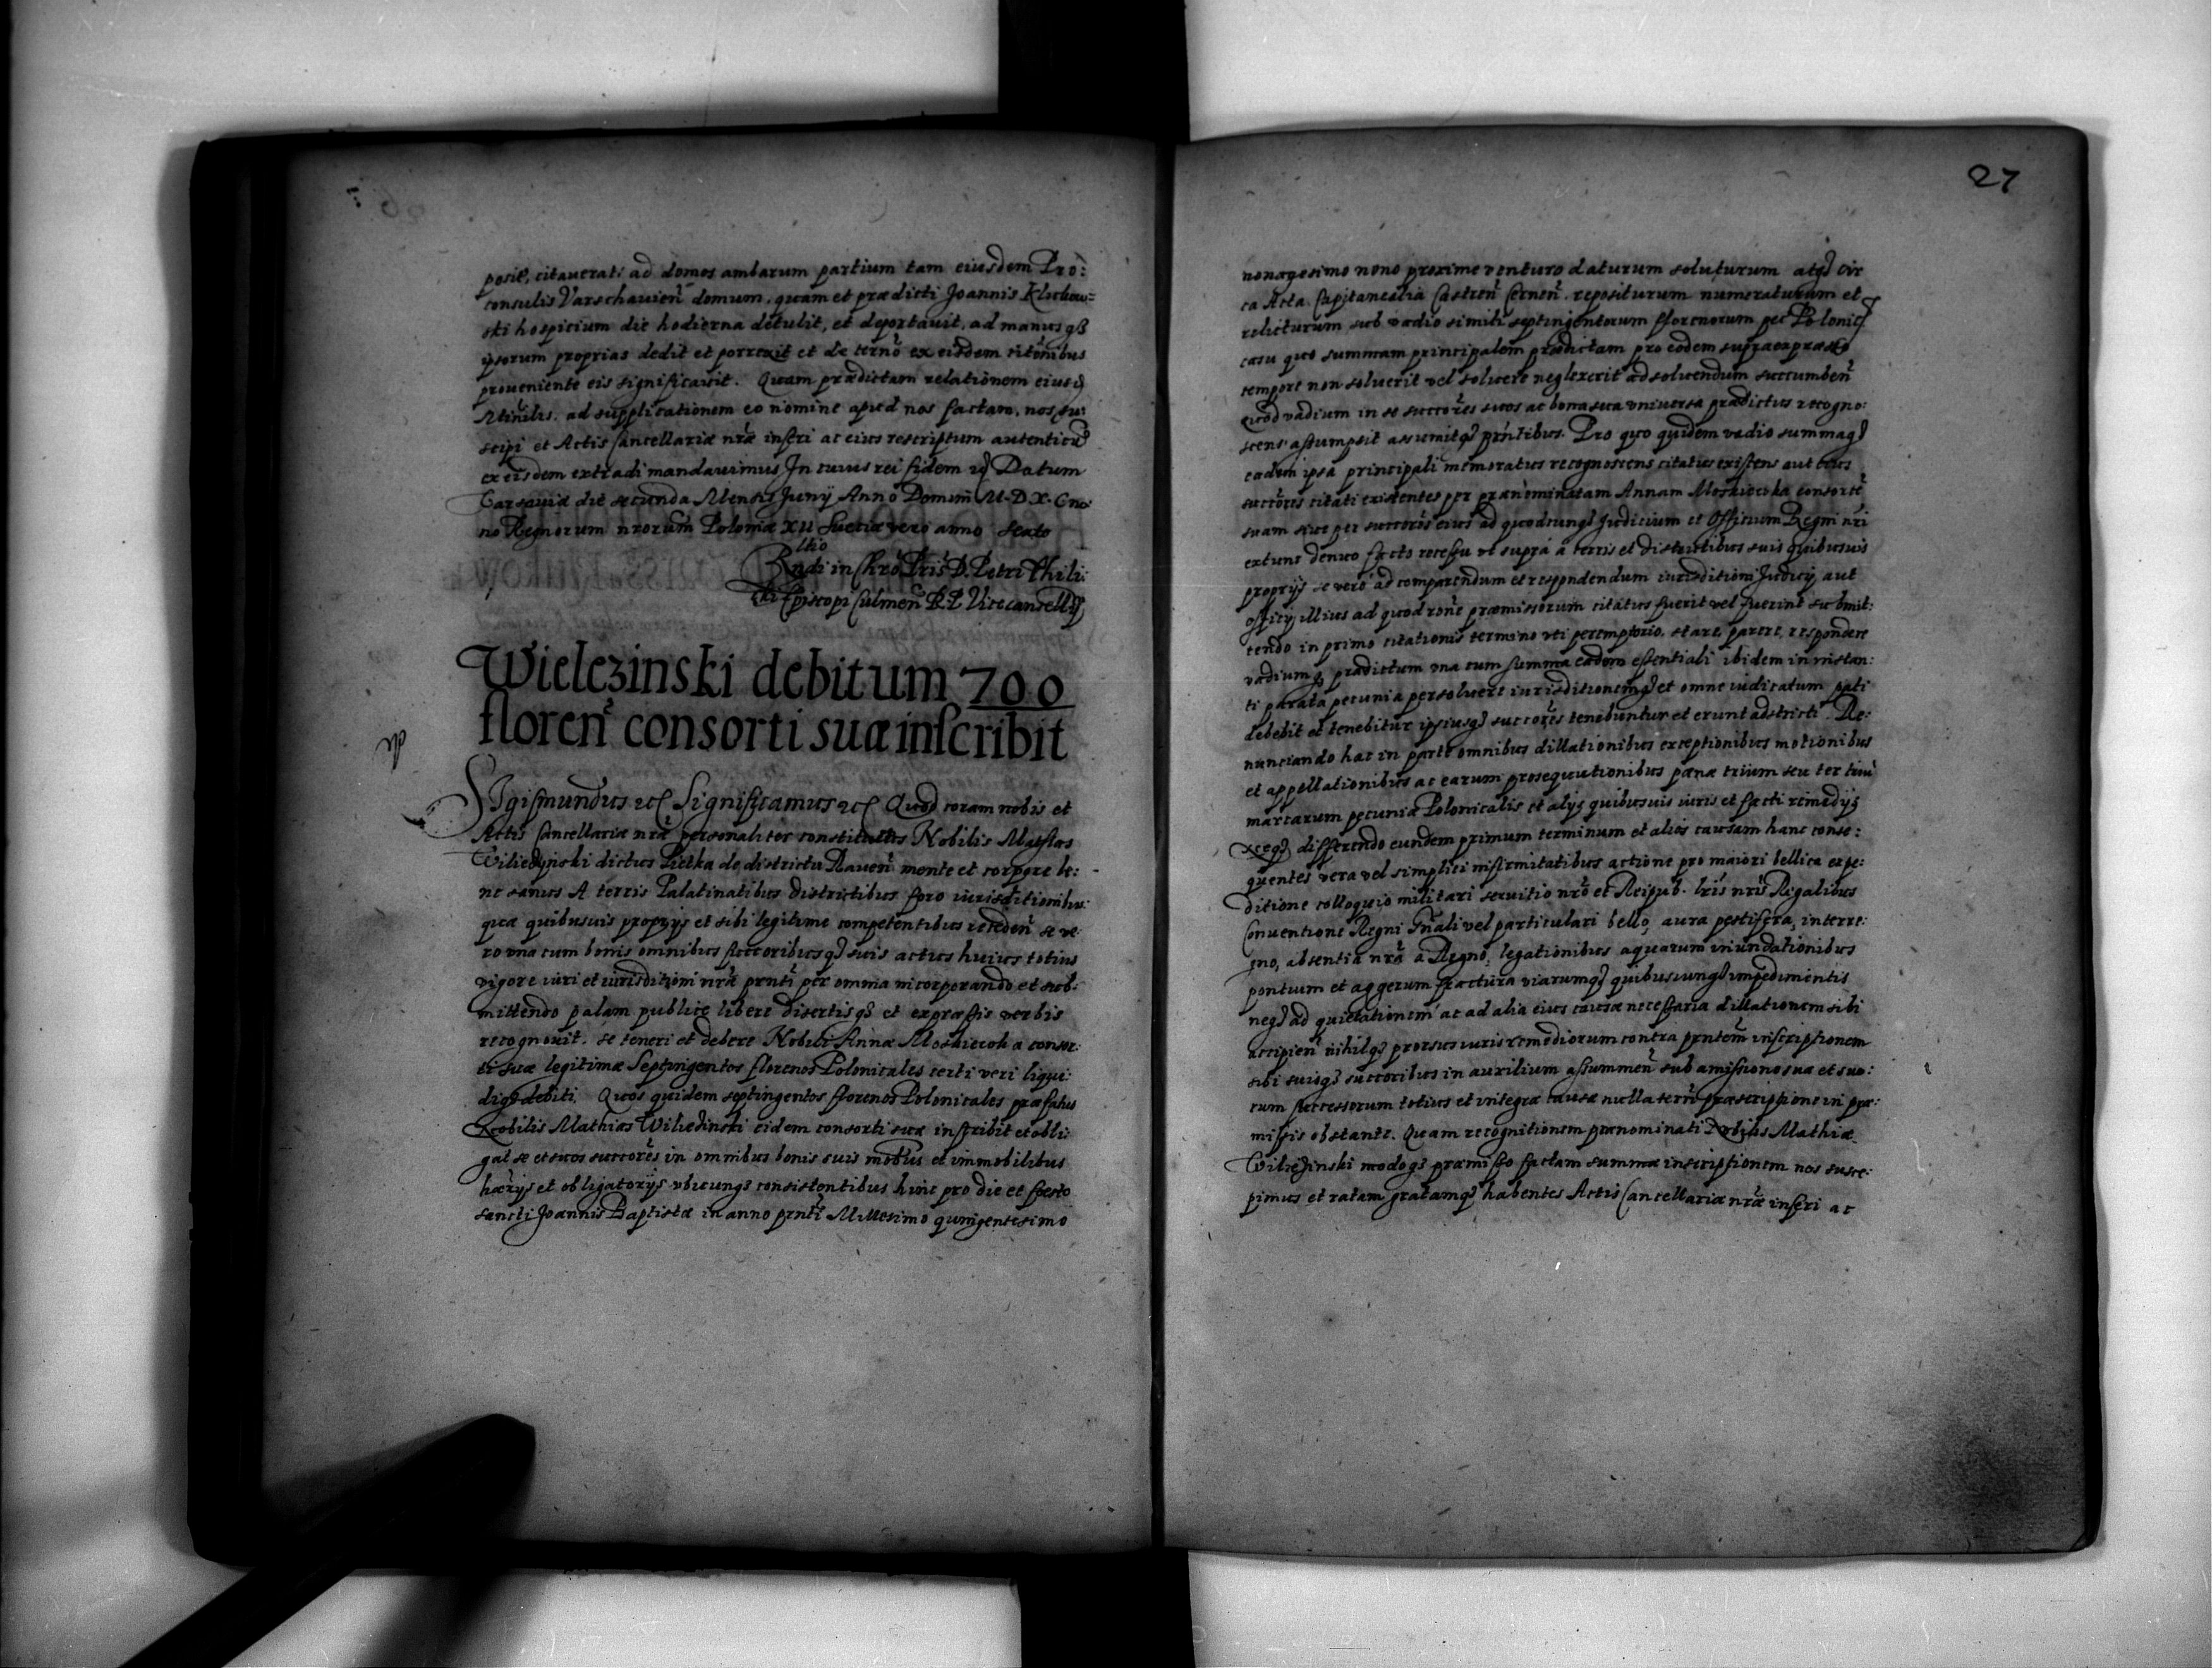 posit, citauerat: ad domos ambarum partium tam eiusdem Pro:
consulis Varschauien̄ domum, quam et prædicti Joannis Klichow=
ski hospitium die hodierna detulit, et deportauit, ad manus qȝ
ipsorum proprias dedit et porrexit et de termō ex eisdem citōnibus
proueniente eis significauit. Quam prædictam relationem eiusd
Mīnlis, ad supplicationem eo nomine apud nos factam, nos su:
scipi et Actis Cancellariæ nræ inseri ac eius rescriptum autenticū
ex eisdem extradi mandauimus In cuius rei fidem Datum
Varsauiæ die secunda Mensis Junÿ Anno Domini M-D X-C no
no Regnorum nrorum Poloniæ XII Sueciæ vero anno sexto
Rltio
Rndi in Chrō Pris D. Petri Thili:
cki Episcopi Culmen̄ R. P. Vicecancellÿ
Wielezinski debitum 700
floren̄ consorti suæ inscribit
de
SIgismundus etc Significamus etc Quod coram nobis et
Actis Cancellariæ nræ personaliter constitutus Nobilis Mathias
Wiliedzinski dictus Pietka de districtu Rauen̄ mente et corpore be:
ne sanus A terris Palatinatibus districtibus foro iurisditionibus
quæ quibusuis proprijs et sibi legitime competentibus recedens se ve:
ro vna cum bonis omnibus succoribusqȝ suis actus huius totius
vigore iuri et iurisditioni nræ prnti per omnia incorporando et sub:
mittendo palam publice libere disertisqȝ et expressis verbis
recognouit. se teneri et debere Nobili Annæ Moskiecoka consor:
ti suæ legitimæ Septingentos florenos Polonicales certi veri liqui:
diqȝ debiti Quos quidem septingentos florenos Polonicales præfatus
Nobilis Mathias Wiliedinski eidem consorti suæ inscribit et obli:
gat se et suos succores in omnibus bonis suis mobilibus et immobilibus
hærijs et obligatorijs vbicunqȝ consistentibus hinc pro die et festo
sancti Joannis Baptistæ in anno prnti Millesimo quingentesimo
27
nonagesimo nono proxime venturo daturum soluturum atqȝ cir
ca Acta Capitanealia Castren̄ Cernen̄ repositurum numeraturum et
relicturum sub vadio simili septingentorum florenorum pec Polonic
casu quo summam principalem prædictam pro eodem supraexpræsso
tempore non soluerit vel soluere neglexerit ad soluendum succumben̄
Quod vadium in se succores suos ac bona sua vniuersa prædictus recogno:
scens assumpsit assumitqȝ prntibus. Pro quo quidem vadio summaqȝ
eadem ipsa principali memoratus recognoscens citatus existens aut eius
succores citati existentes per prænominatam Annam Moskiecoka consorte
suam siue per succores eius ad quodcunqȝ Judicium et Officium Regni nri
extunc denuo facto recessu vt supra a terris et districtibus suis quibusuis
proprijs se vero ad comparendum et respondendum iurisditioni Judicij aut
officij illius ad quod rone præmissorum citatus fuerit vel fuerint submit:
tendo in primo citationis termino vti peremptorio, stare, parere, respondere
vadiumqȝ prædictum vna cum summa eadem essentiali ibidem in instan:
ti parata pecunia persoluere iurisditionemqȝ et omne iudicatum pati
debebit et tenebitur ipsiusqȝ succores tenebuntur et erunt adstricti. Re:
nunciando hac in parte omnibus dillationibus exceptionibus motionibus
et appellationibus ac earum prosequutionibus pænæ trium seu ter trium
marcarum pecuniæ Polonicalis et alijs quibusuis iuris et facti remedijs
neqȝ differendo eundem primum terminum et alios causam hanc conse:
quentes vera vel simplici infirmitatibus actione pro maiori bellica expe:
ditione colloquio militari seruitio nro et Reipub. lris nris Regalibus
Conuentione Regni Gnali vel particulari bello, aura pestifera, interre:
gno, absentia nra a Regno, legationibus aquarum inundationibus
pontium et aggerum fractura viarumqȝ quibuscunqȝ impedimentis
neqȝ ad quietationem ac ad alia eius causæ necessaria dillationem sibi
accipien̄ nihilqȝ prorsus iuris remediorum contra prntem inscriptionem
sibi suisqȝ succoribus in auxilium assummen̄ sub amissione sua et suo:
rum successorum totius et integræ causæ nulla tern̄ præscriptione in præ:
missis obstante. Quam recognitionem prænominati Nobilis Mathiæ
Wiliedzinski modoqȝ præmisso factam summæ inscriptionem nos susce:
pimus et ratam gratamqȝ habentes Actis Cancellariæ nræ inseri ac